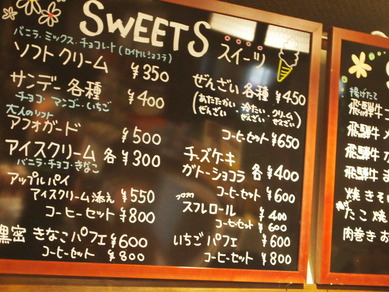 SWEETS スイーツ
バニラ・ミックス・チョコレート(ロイヤルショコラ)
ソフトクリーム ¥350
サンデー各種 ¥400
チョコ・マンゴー・いちご
大人のソフト
アフォガード ¥500
アイスクリーム 各¥300
バニラ・チョコ・きなこ
アップルパイ
アイスクリーム添え ¥550
コーヒーセット ¥800
黒蜜きなこパフェ ¥600
コーヒーセット ¥800
ぜんざい各種 ¥450
(あたたかい ぜんざい・冷たい ぜんざい・クリーム ぜんざい)
コーヒーセット ¥650
チーズケーキ
ガトーショコラ 各¥400
コーヒーセット ¥600
スフレロール ¥400
コーヒーセット ¥600
いちごパフェ ¥600
コーヒーセット ¥800
揚げたて
飛騨牛
飛騨牛
飛騨牛
飛騨牛
焼きそ
たこ焼
肉巻きお